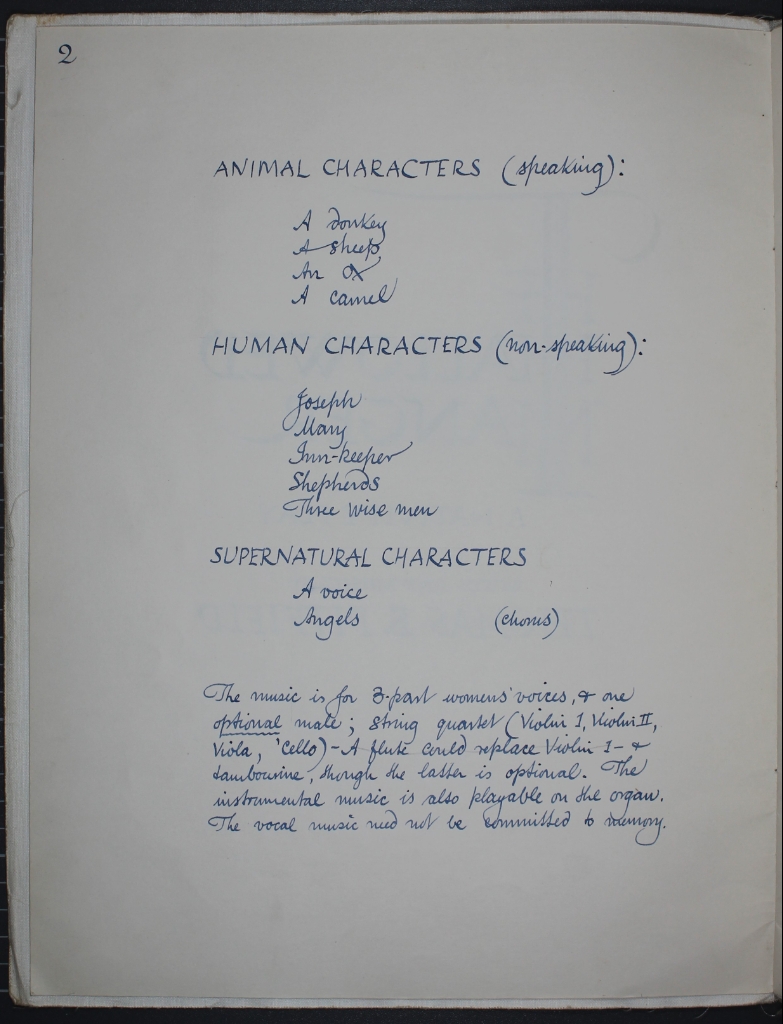 2
ANIMAL CHARACTERS (speaking):
A donkey
A sheep
An ox
A camel
HUMAN CHARACTERS (non-speaking):
Joseph
Mary
Inn-keeper
Shepherds
Three wise men
SUPERNATURAL CHARACTERS
A voice
Angels (chorus)
The music is for 3-part womens' voices, & one
optional male; string quartet (Violin 1, Violin II,
Viola, 'Cello) - A flute could replace Violin 1 - &
tambourine, though the latter is optional. The
instrumental music is also playable on the organ.
The vocal music need not be committed to memory.